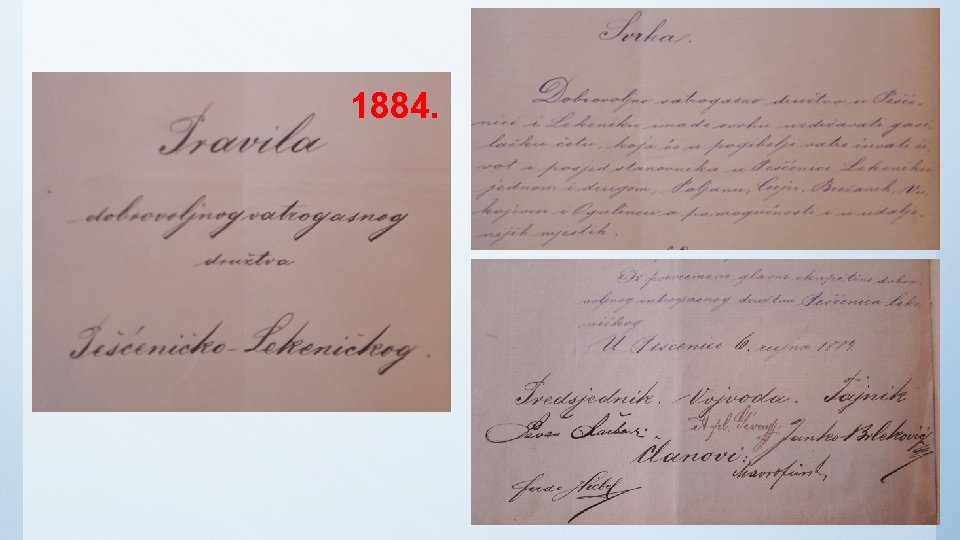 1884.
Pravila
dobrovoljnog vatrogasnog
družtva
Pešćeničko-Lekeničkog.
Svrha.
Dobrovoljno vatrogasno družtvo u Pešće-
nici i Lekeniku imade svrhu uzdržavati gase
lačku četu, koja će u pogibelji vatre čuvati ži
vot i posjed stanovnika u Pešćenici, Lekeniku
jednom i drugom, Poljanu, Cerju, Brežanih, Vu
kojevcu i Ogulincu a po mogućnosti i u udalje-
nijih mjestih.
Iz privremene glavne skupštine dobro-
voljnog vatrogasnog družtva Pešćenica Leke-
ničkog
U Pešćenici 6. rujna 1884.
Predsjednik. Vojvoda. Tajnik
Janko Brleković
Članovi: